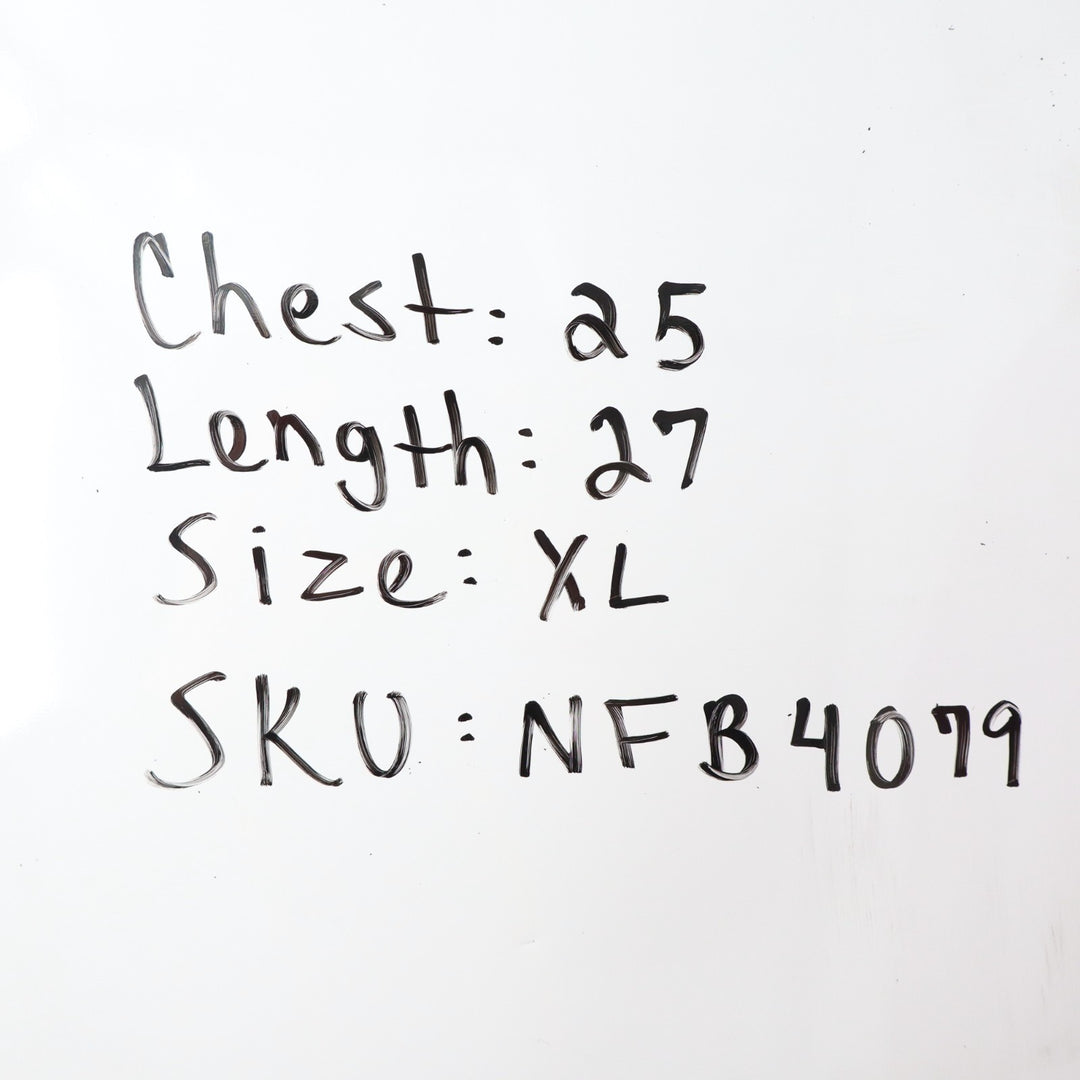 Chest: 25
Length: 27
Size: XL
SKU: NFB4079